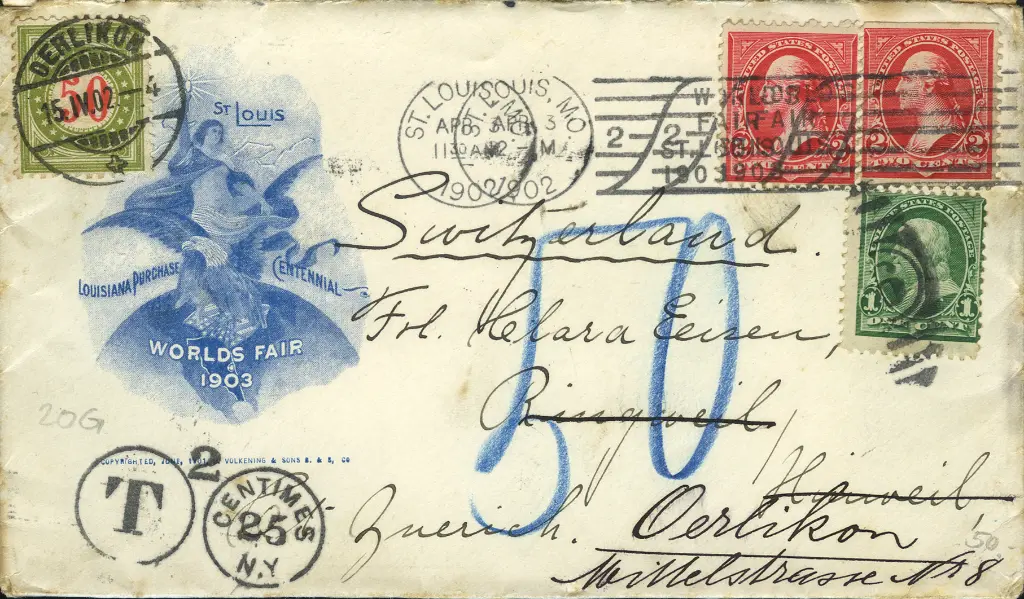 OERLIKON
15.IV.02–4
50
ST LOUIS
LOUISIANA PURCHASE CENTENNIAL
WORLDS FAIR
1903
COPYRIGHTED, JUNE, 1901, VOLKENING & SONS
ST. LOUIS, MO
APR 3
1130 AM
1902
2
WORLD'S
FAIR
ST. LOUIS
1903
UNITED STATES POSTAGE
2 2
TWO CENTS
UNITED STATES POSTAGE
2 2
TWO CENTS
UNITED STATES POSTAGE
1 1
ONE CENT
Switzerland.
Frl. Clara Eisen,
Ringweil
Hinweil,
Zuerich. Oerlikon
Mittelstrasse No 8
50
20G
T
2
CENTIMES
25
N.Y
50